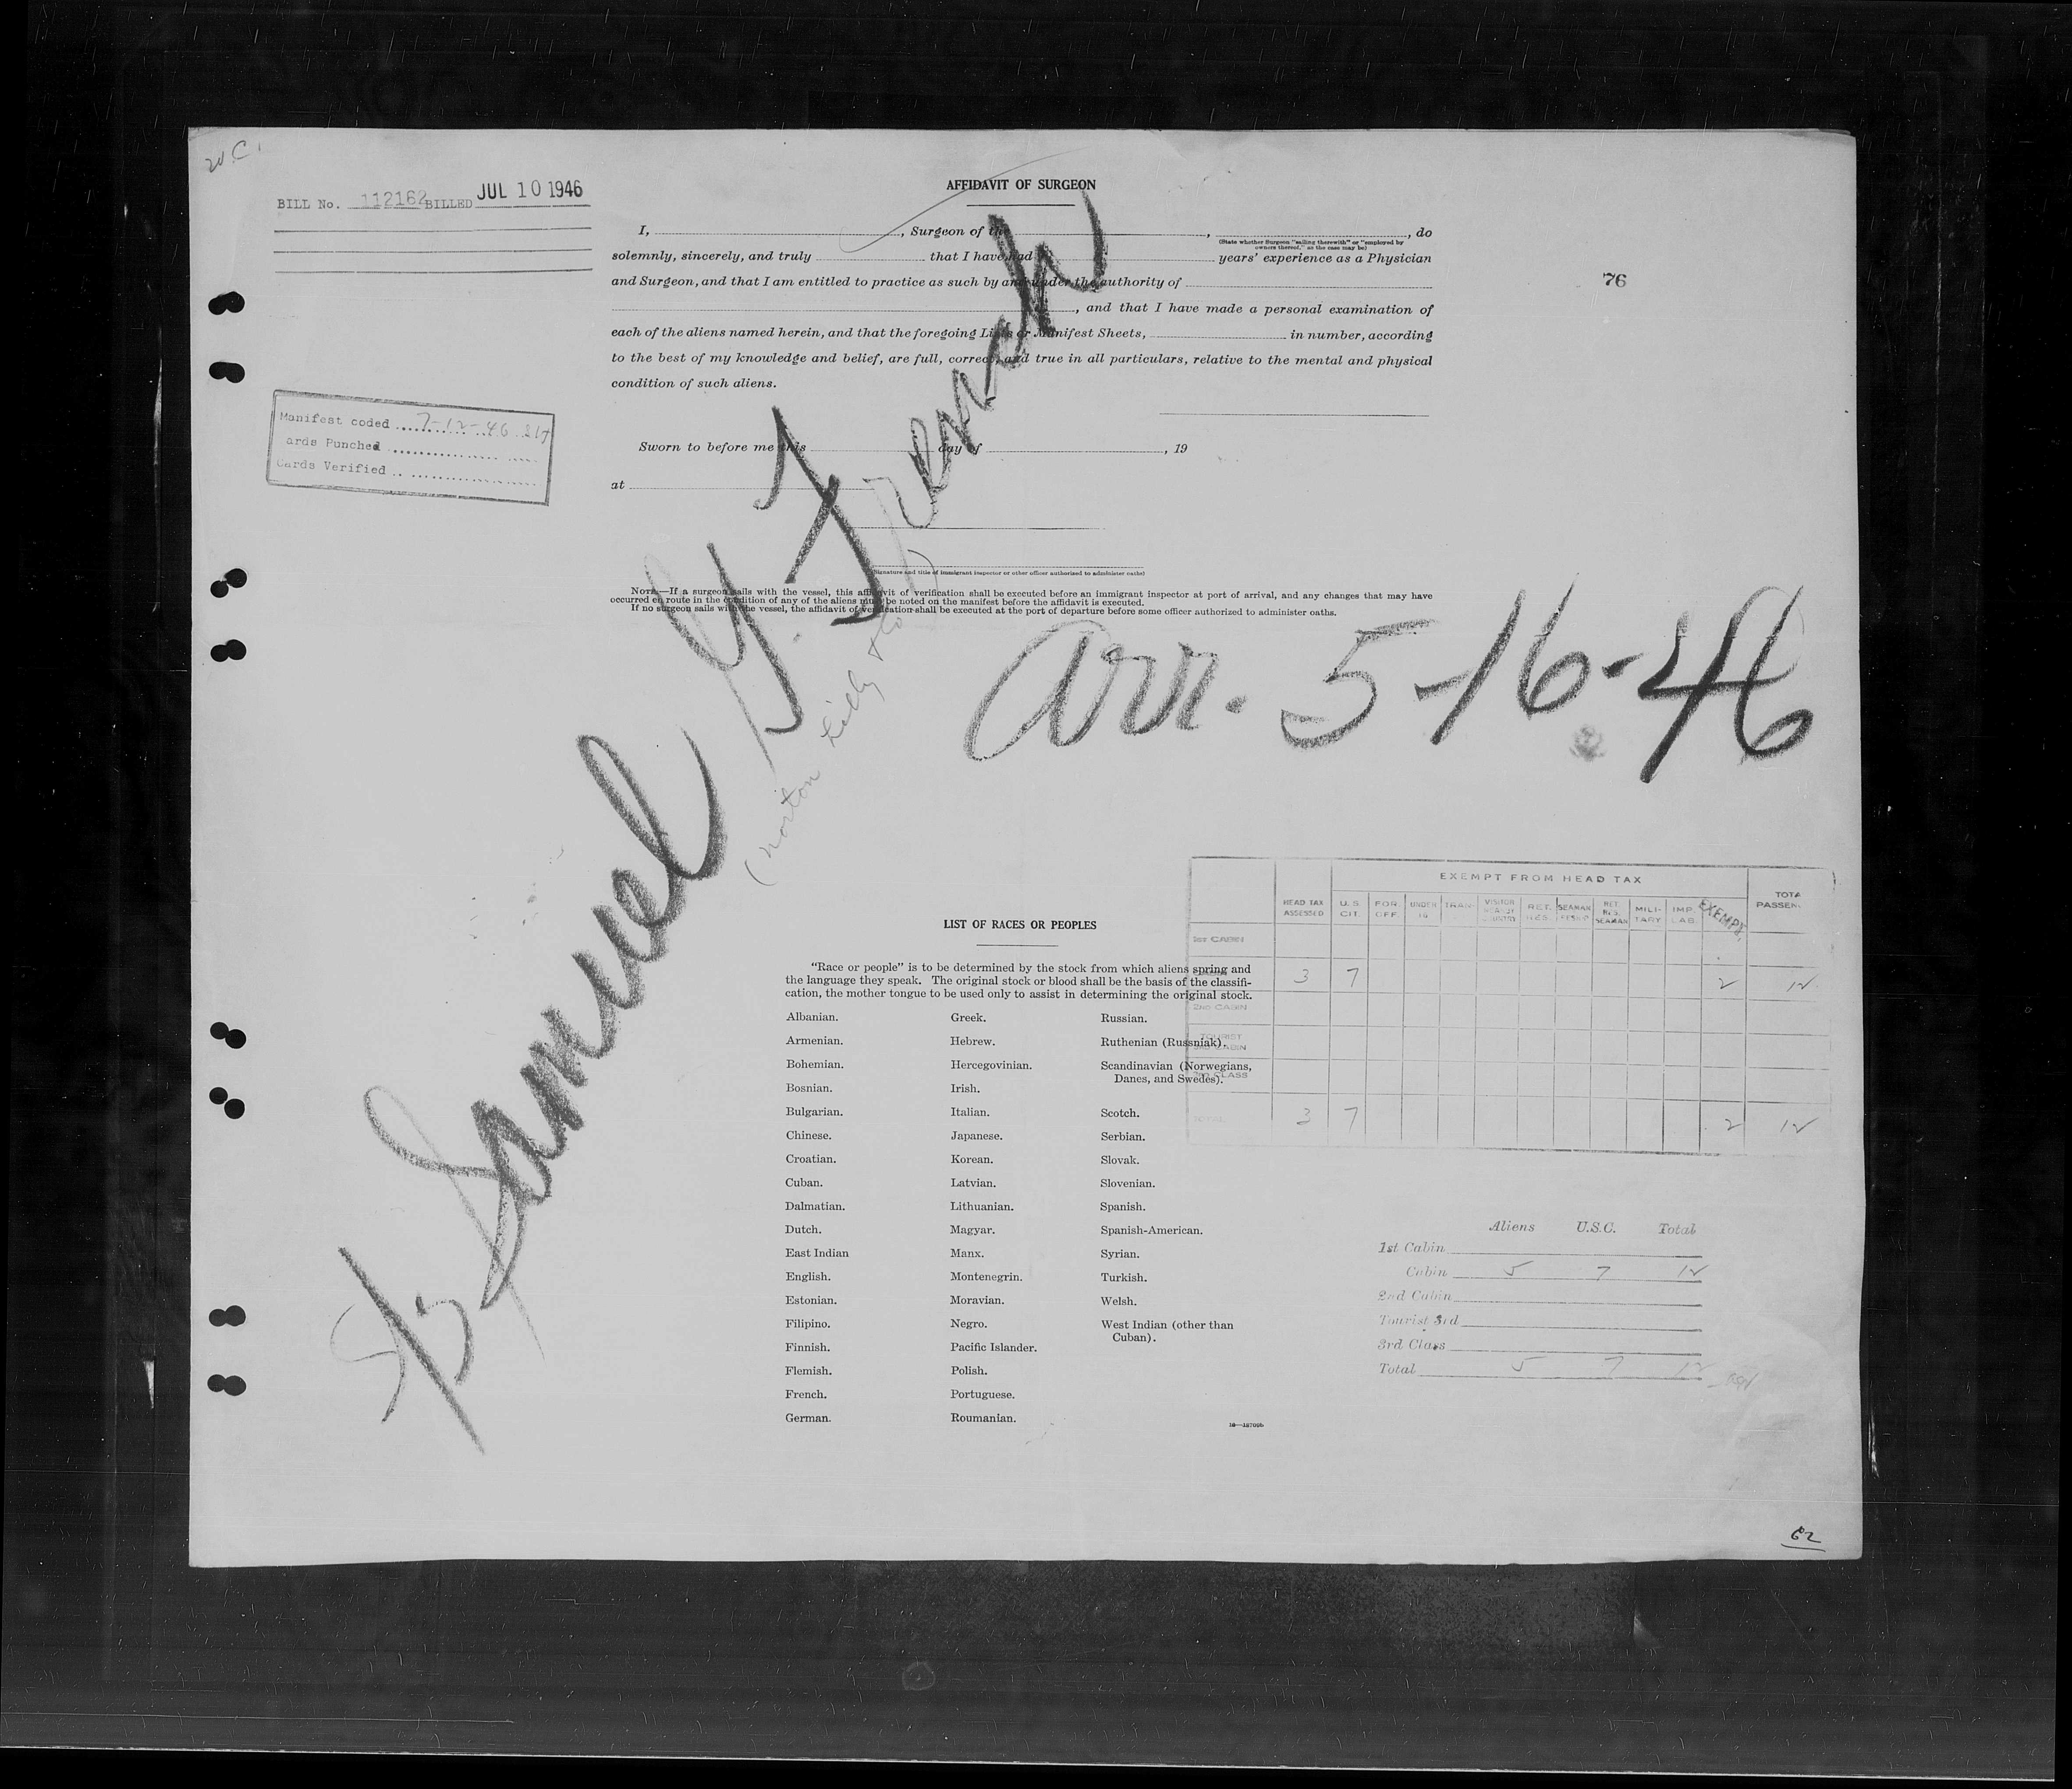 BILL No. 112162 BILLED JUL 10 1946
AFFIDAVIT OF SURGEON
I, , Surgeon of the , , do
(State whether Surgeon "sailing therewith" or "employed by
owners thereof," as the case may be)
solemnly, sincerely, and truly that I have had years' experience as a Physician
and Surgeon, and that I am entitled to practice as such by and under the authority of
, and that I have made a personal examination of
each of the aliens named herein, and that the foregoing Lists or Manifest Sheets, in number, according
to the best of my knowledge and belief, are full, correct, and true in all particulars, relative to the mental and physical
condition of such aliens.
76
Manifest coded 7-12-46
ards Punched
Cards Verified
Sworn to before me this day of , 19
at
(Signature and title of immigrant inspector or other officer authorized to administer oaths)
NOTE.—If a surgeon sails with the vessel, this affidavit of verification shall be executed before an immigrant inspector at port of arrival, and any changes that may have
occurred en route in the condition of any of the aliens must be noted on the manifest before the affidavit is executed.
If no surgeon sails with the vessel, the affidavit of verification shall be executed at the port of departure before some officer authorized to administer oaths.
Samuel G. French
(Norton Lilly & Co)
Arr. 5-16-46
EXEMPT FROM HEAD TAX
HEAD TAX ASSESSED U.S. CIT. FOR. OFF. UNDER 16 TRAN- RET. RES. SEAMAN RET. RES. SEAMAN MILI- TARY IMP. LAB. EXEMPT. TOTA PASSEN.
1ST CABIN
3 7 2 12
2ND CABIN
TOURIST
CLASS
3 7 2 12
LIST OF RACES OR PEOPLES
"Race or people" is to be determined by the stock from which aliens spring and
the language they speak. The original stock or blood shall be the basis of the classifi-
cation, the mother tongue to be used only to assist in determining the original stock.
Albanian. Greek. Russian.
Armenian. Hebrew. Ruthenian (Russniak).
Bohemian. Hercegovinian. Scandinavian (Norwegians,
Danes, and Swedes).
Bosnian. Irish.
Bulgarian. Italian. Scotch.
Chinese. Japanese. Serbian.
Croatian. Korean. Slovak.
Cuban. Latvian. Slovenian.
Dalmatian. Lithuanian. Spanish.
Dutch. Magyar. Spanish-American.
East Indian Manx. Syrian.
English. Montenegrin. Turkish.
Estonian. Moravian. Welsh.
Filipino. Negro. West Indian (other than
Cuban).
Finnish. Pacific Islander.
Flemish. Polish.
French. Portuguese.
German. Roumanian.
16—18709b
Aliens U.S.C. Total
1st Cabin
Cabin 5 7 12
2nd Cabin
Tourist 3rd
3rd Class
Total 5 7 12
62